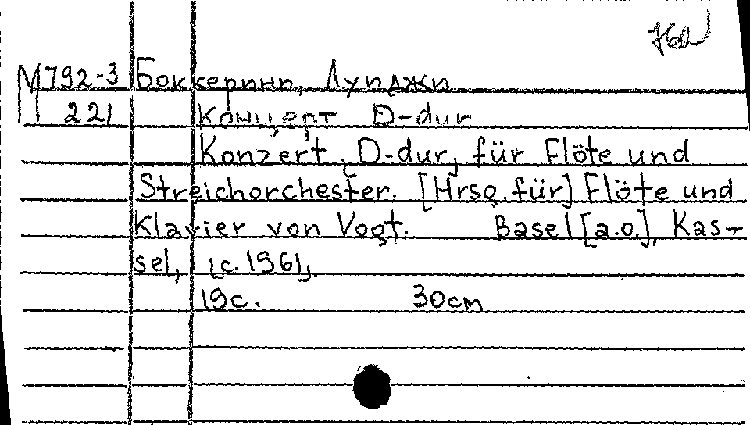 М792-3 Боккерини, Луиджи
221 Концерт D-dur
Konzert, D-dur, für Flöte und
Streichorchester. [Hrsg. für] Flöte und
Klavier von Vogt. Basel [a.o.], Kas-
sel, [c. 1961],
19c. 30cm